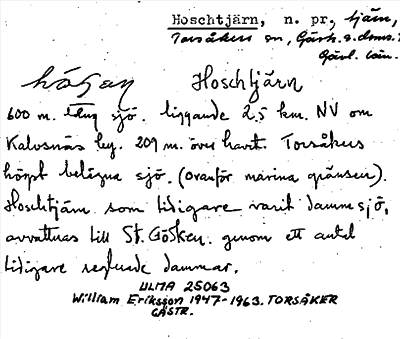 Hoschtjärn, n. pr., tjärn,
Torsåkers sn, Gästr. s. doms.
Gävl. län.
Hoschtjärn
600 m. lång sjö. liggande 2,5 km. NV om
Kalvsnäs by. 209 m. över havet. Torsåkers
högst belägna sjö. (ovanför marina gränsen).
Hoschtjärn som tidigare varit dammsjö,
avvattnas till St. Gösken. genom ett antal
tidigare reglerade dammar.
ULMA 25063
William Eriksson 1947-1963. TORSÅKER
GÄSTR.